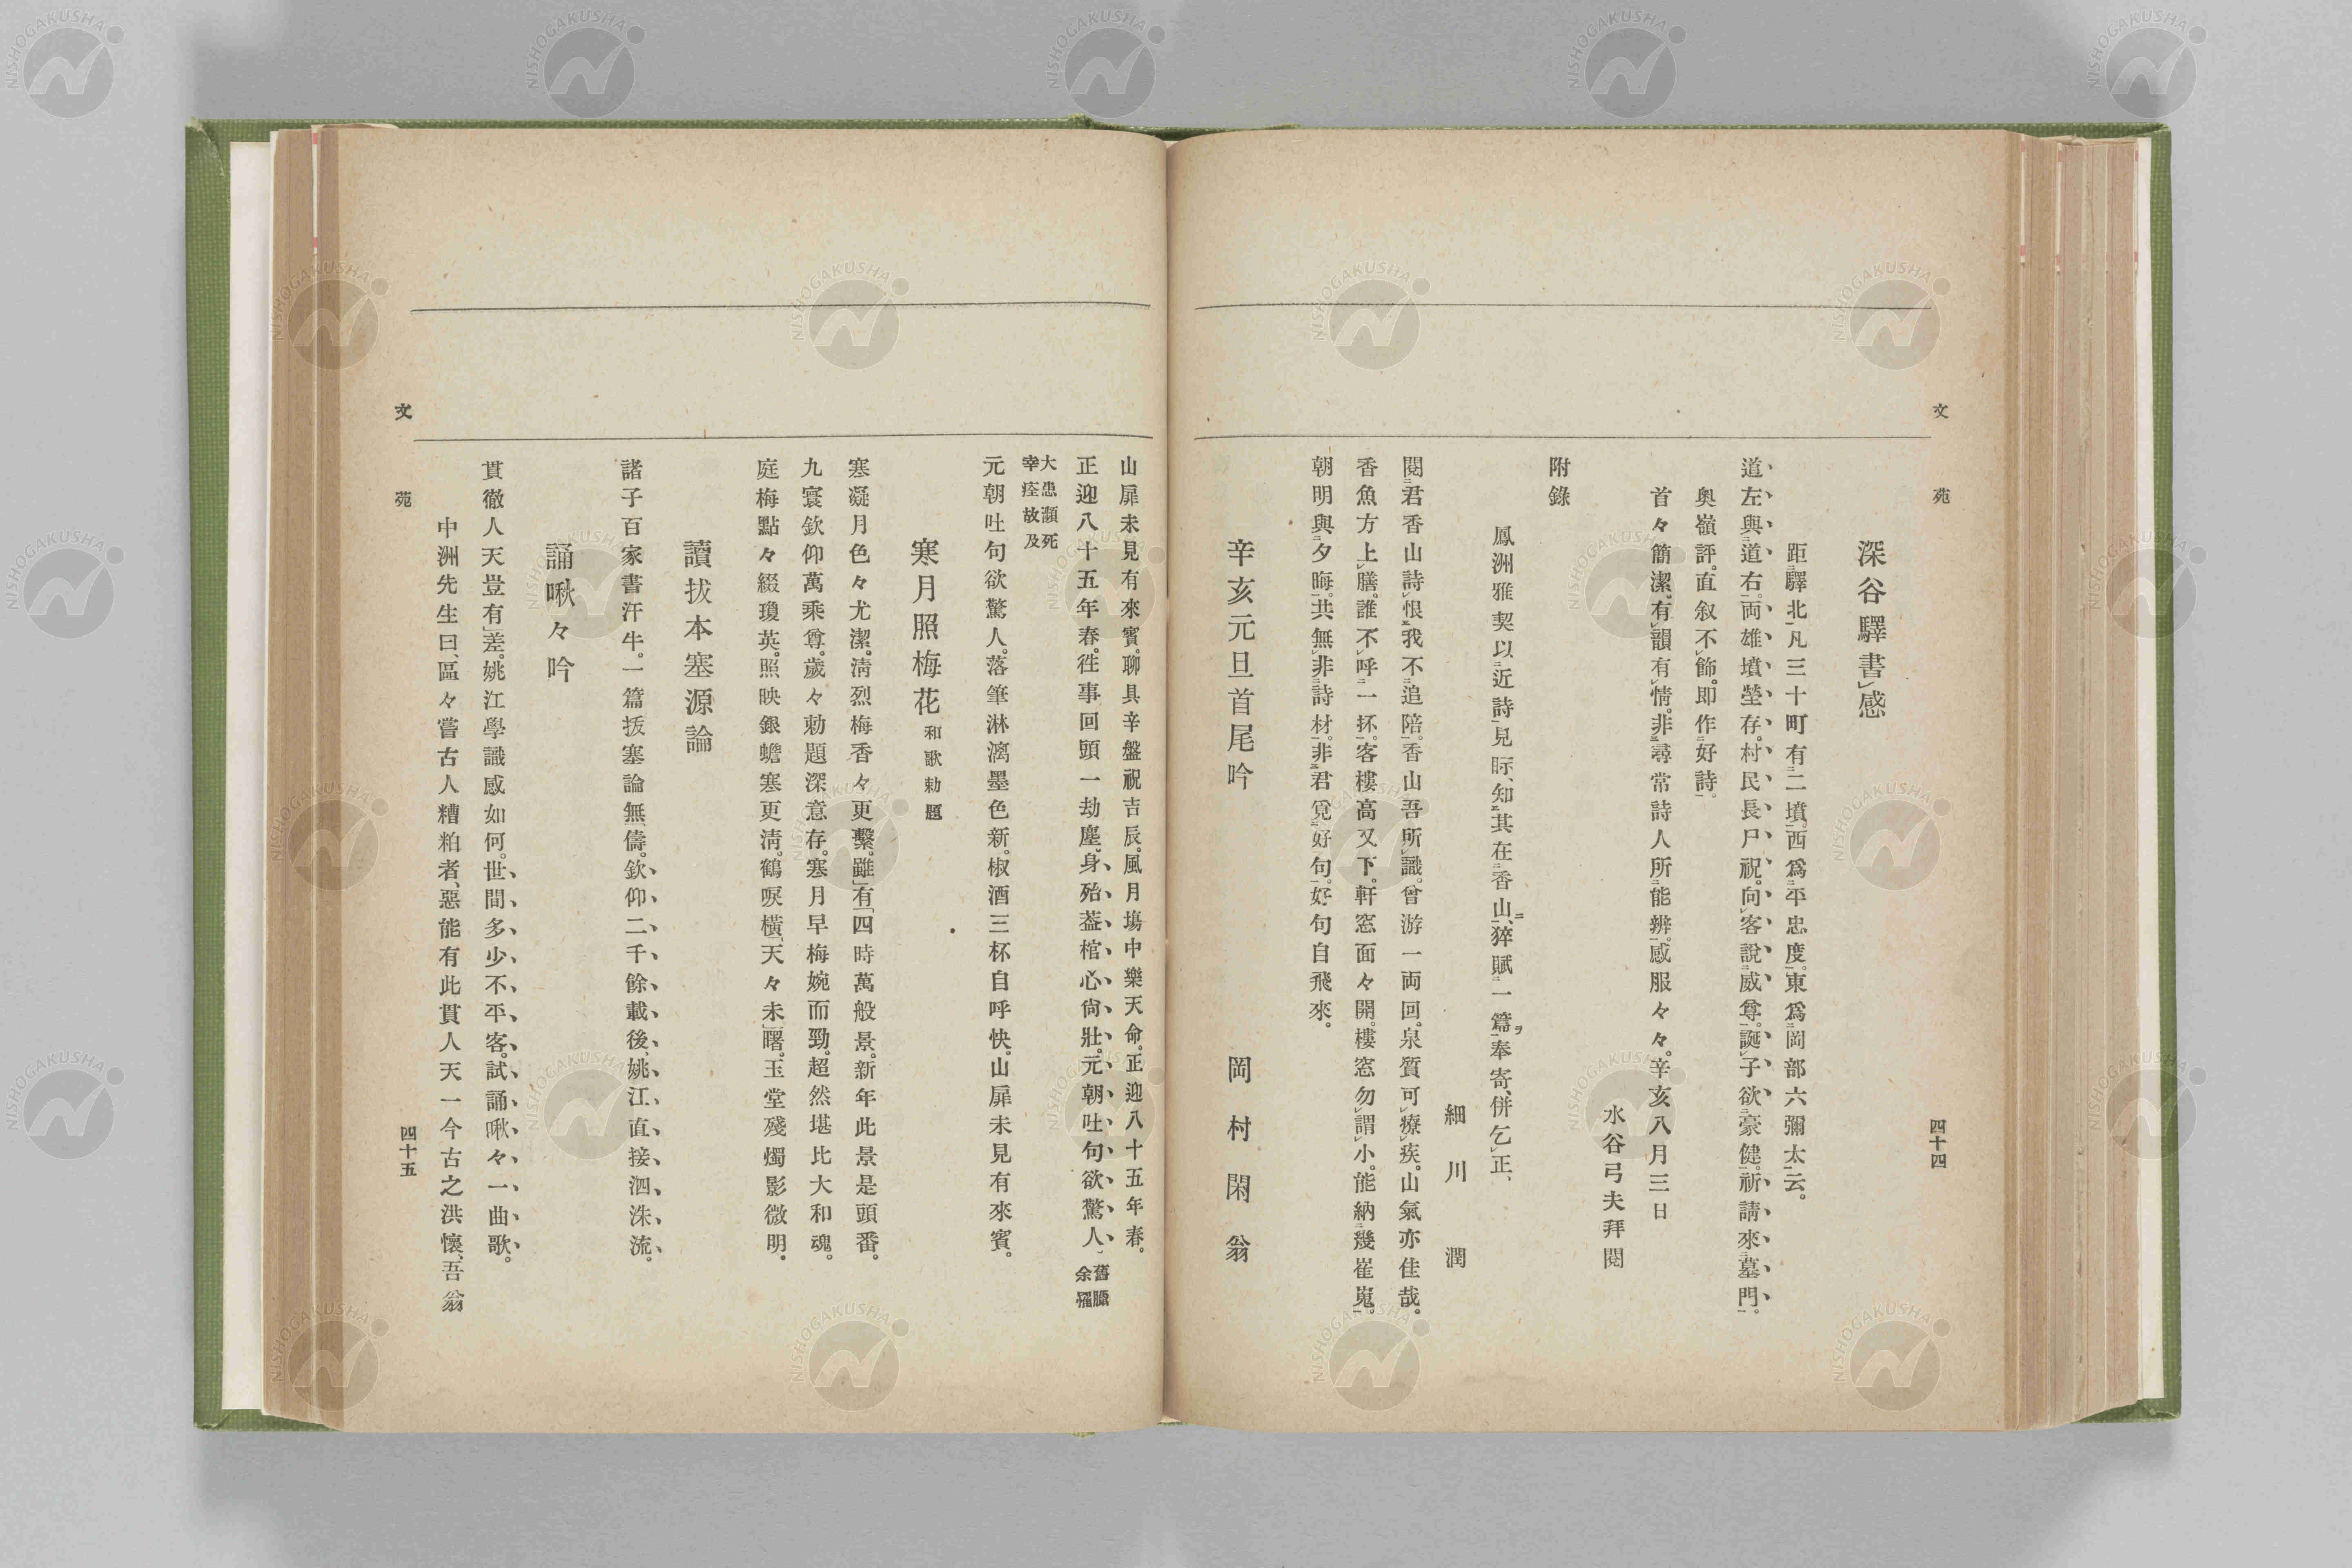 文苑
四十四
深谷驛書感
距驛北凡三十町有二墳。西爲平忠度。東爲岡部六彌太云。
道左與道右。両雄墳塋存。村民長尸祝。向客說威尊。誕子欲豪健。祈請來墓門。
奧嶺評。直叙不飾。即作好詩。
首々簡潔。有韻有情。非尋常詩人所能辨。感服々々。辛亥八月三日
水谷弓夫拜閱
附錄
鳳洲雅契以近詩見眎、知其在香山、猝賦一篇奉寄、併乞正、
細川潤
閱君香山詩。恨我不追陪。香山吾所識。曾游一両回。泉質可療疾。山氣亦佳哉。
香魚方上膳。誰不呼一抔。客樓高又下。軒窓面々開。樓窓勿謂小。能納幾崔嵬。
朝明與夕晦。共無非詩材。非君覓好句。好句自飛來。
辛亥元旦首尾吟
岡村閑翁
山扉未見有來賓。聊具辛盤祝吉辰。風月塲中樂天命。正迎八十五年春。
正迎八十五年春。徃事回頭一劫塵。身殆葢棺心尙壯。元朝吐句欲驚人。舊臘余罹
大患瀕死幸痊故及
元朝吐句欲驚人。落筆淋漓墨色新。椒酒三杯自呼快。山扉未見有來賓。
寒月照梅花 和歌勅題
寒凝月色々尤潔。淸烈梅香々更繫。雖有四時萬般景。新年此景是頭番。
九寰欽仰萬乘尊。歲々勅題深意存。寒月早梅婉而勁。超然堪比大和魂。
庭梅點々綴瓊英。照映銀蟾寒更淸。鶴唳橫天々未曙。玉堂殘燭影微明。
讀拔本塞源論
諸子百家書汗牛。一篇拔塞論無儔。欽仰二千餘載後、姚江直接泗洙流。
誦啾々吟
貫徹人天豈有差。姚江學識感如何。世間多少不平客。試誦啾々一曲歌。
中洲先生曰、區々嘗古人糟粕者、惡能有此貫人天一今古之洪懷、吾翁
文苑
四十五